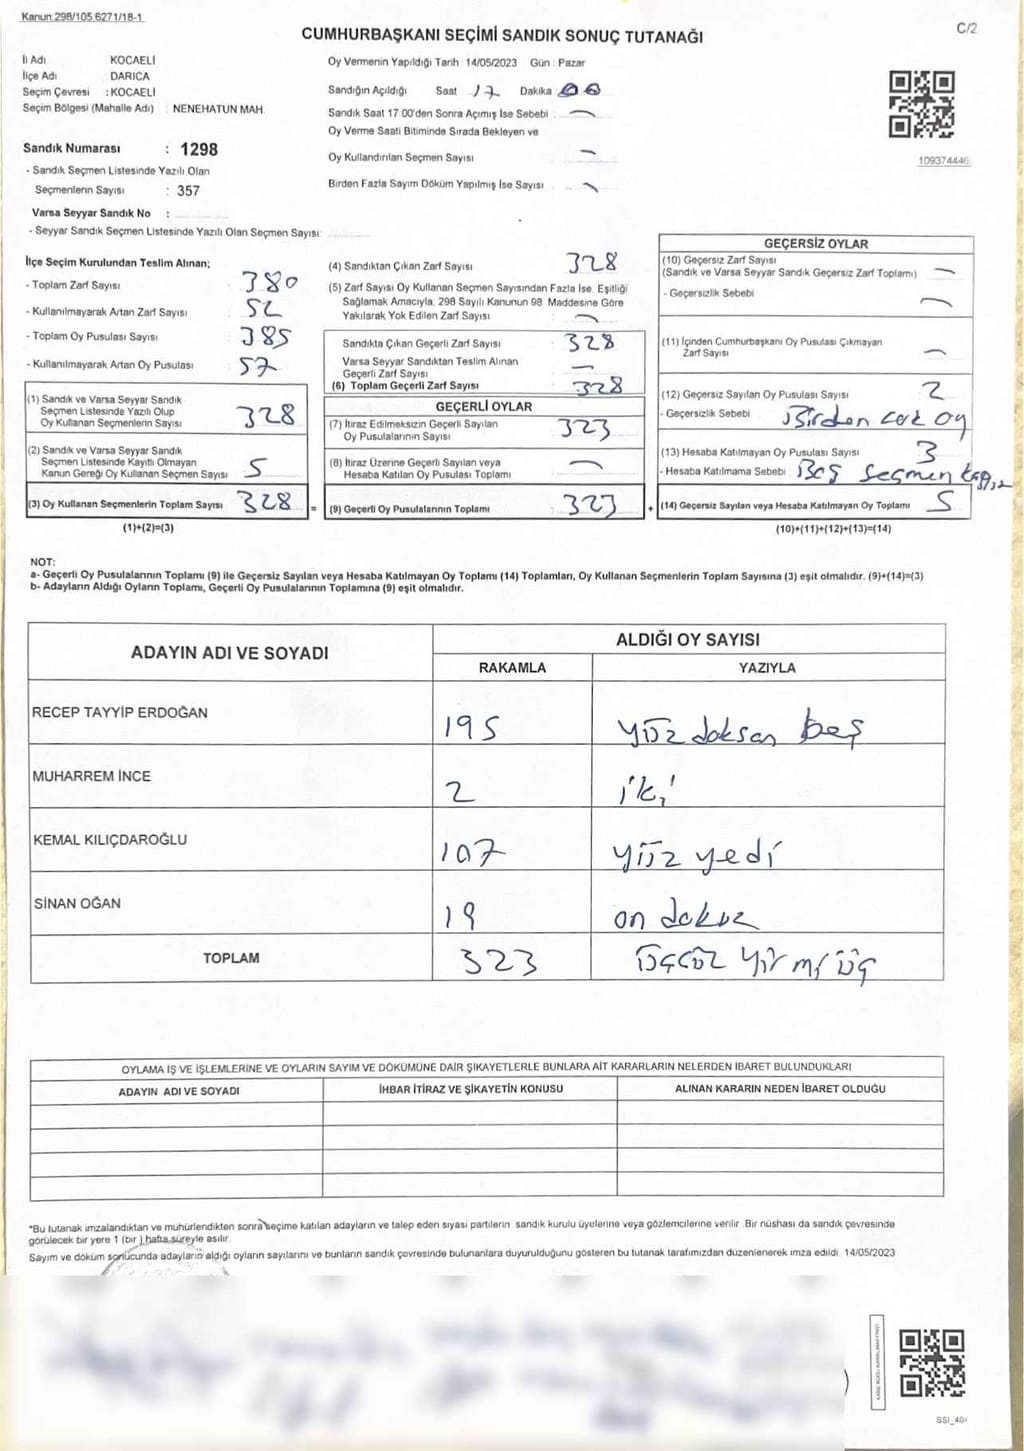 Kanun 298/105,6271/18-1
C/2
CUMHURBAŞKANI SEÇİMİ SANDIK SONUÇ TUTANAĞI
İl Adı KOCAELİ
İlçe Adı DARICA
Seçim Çevresi : KOCAELİ
Seçim Bölgesi (Mahalle Adı) : NENEHATUN MAH
Sandık Numarası : 1298
- Sandık Seçmen Listesinde Yazılı Olan
Seçmenlerin Sayısı : 357
Varsa Seyyar Sandık No :
- Seyyar Sandık Seçmen Listesinde Yazılı Olan Seçmen Sayısı:
Oy Vermenin Yapıldığı Tarih 14/05/2023 Gün : Pazar
Sandığın Açıldığı Saat 17 Dakika 00
Sandık Saat 17:00'den Sonra Açımış İse Sebebi : —
Oy Verme Saati Bitiminde Sırada Bekleyen ve
Oy Kullandırılan Seçmen Sayısı —
Birden Fazla Sayım Döküm Yapılmış İse Sayısı : —
109374446
İlçe Seçim Kurulundan Teslim Alınan;
- Toplam Zarf Sayısı 380
- Kullanılmayarak Artan Zarf Sayısı 52
- Toplam Oy Pusulası Sayısı 385
- Kullanılmayarak Artan Oy Pusulası 57
(1) Sandık ve Varsa Seyyar Sandık
Seçmen Listesinde Yazılı Olup
Oy Kullanan Seçmenlerin Sayısı 328
(2) Sandık ve Varsa Seyyar Sandık
Seçmen Listesinde Kayıtlı Olmayan
Kanun Gereği Oy Kullanan Seçmen Sayısı 5
(3) Oy Kullanan Seçmenlerin Toplam Sayısı 328 =
(1)+(2)=(3)
(4) Sandıktan Çıkan Zarf Sayısı 328
(5) Zarf Sayısı Oy Kullanan Seçmen Sayısından Fazla İse, Eşitliği
Sağlamak Amacıyla; 298 Sayılı Kanunun 98. Maddesine Göre
Yakılarak Yok Edilen Zarf Sayısı : —
Sandıkta Çıkan Geçerli Zarf Sayısı 328
Varsa Seyyar Sandıktan Teslim Alınan
Geçerli Zarf Sayısı —
(6) Toplam Geçerli Zarf Sayısı 328
GEÇERLİ OYLAR
(7) İtiraz Edilmeksizin Geçerli Sayılan
Oy Pusulalarının Sayısı 323
(8) İtiraz Üzerine Geçerli Sayılan veya
Hesaba Katılan Oy Pusulası Toplamı —
(9) Geçerli Oy Pusulalarının Toplamı 323 +
GEÇERSİZ OYLAR
(10) Geçersiz Zarf Sayısı
(Sandık ve Varsa Seyyar Sandık Geçersiz Zarf Toplamı) —
- Geçersizlik Sebebi —
(11) İçinden Cumhurbaşkanı Oy Pusulası Çıkmayan
Zarf Sayısı —
(12) Geçersiz Sayılan Oy Pusulası Sayısı 2
- Geçersizlik Sebebi Birden çok oy
(13) Hesaba Katılmayan Oy Pusulası Sayısı 3
- Hesaba Katılmama Sebebi Boş seçmen
(14) Geçersiz Sayılan veya Hesaba Katılmayan Oy Toplamı 5
(10)+(11)+(12)+(13)=(14)
NOT:
a- Geçerli Oy Pusulalarının Toplamı (9) ile Geçersiz Sayılan veya Hesaba Katılmayan Oy Toplamı (14) Toplamları, Oy Kullanan Seçmenlerin Toplam Sayısına (3) eşit olmalıdır. (9)+(14)=(3)
b- Adayların Aldığı Oyların Toplamı, Geçerli Oy Pusulalarının Toplamına (9) eşit olmalıdır.
ADAYIN ADI VE SOYADI ALDIĞI OY SAYISI
RAKAMLA YAZIYLA
RECEP TAYYİP ERDOĞAN 195 yüz doksan beş
MUHARREM İNCE 2 iki
KEMAL KILIÇDAROĞLU 107 yüz yedi
SİNAN OĞAN 19 on dokuz
TOPLAM 323 üççüz yirmi üç
OYLAMA İŞ VE İŞLEMLERİNE VE OYLARIN SAYIM VE DÖKÜMÜNE DAİR ŞİKAYETLERLE BUNLARA AİT KARARLARIN NELERDEN İBARET BULUNDUKLARI
ADAYIN ADI VE SOYADI İHBAR İTİRAZ VE ŞİKAYETİN KONUSU ALINAN KARARIN NEDEN İBARET OLDUĞU
*Bu tutanak imzalandıktan ve mühürlendikten sonra seçime katılan adayların ve talep eden siyasi partilerin sandık kurulu üyelerine veya gözlemcilerine verilir. Bir nüshası da sandık çevresinde
görülecek bir yere 1 (bir ) hafta süreyle asılır.
Sayım ve döküm sonucunda adayların aldığı oyların sayılarını ve bunların sandık çevresinde bulunanlara duyurulduğunu gösteren bu tutanak tarafımızdan düzenlenerek imza edildi. 14/05/2023